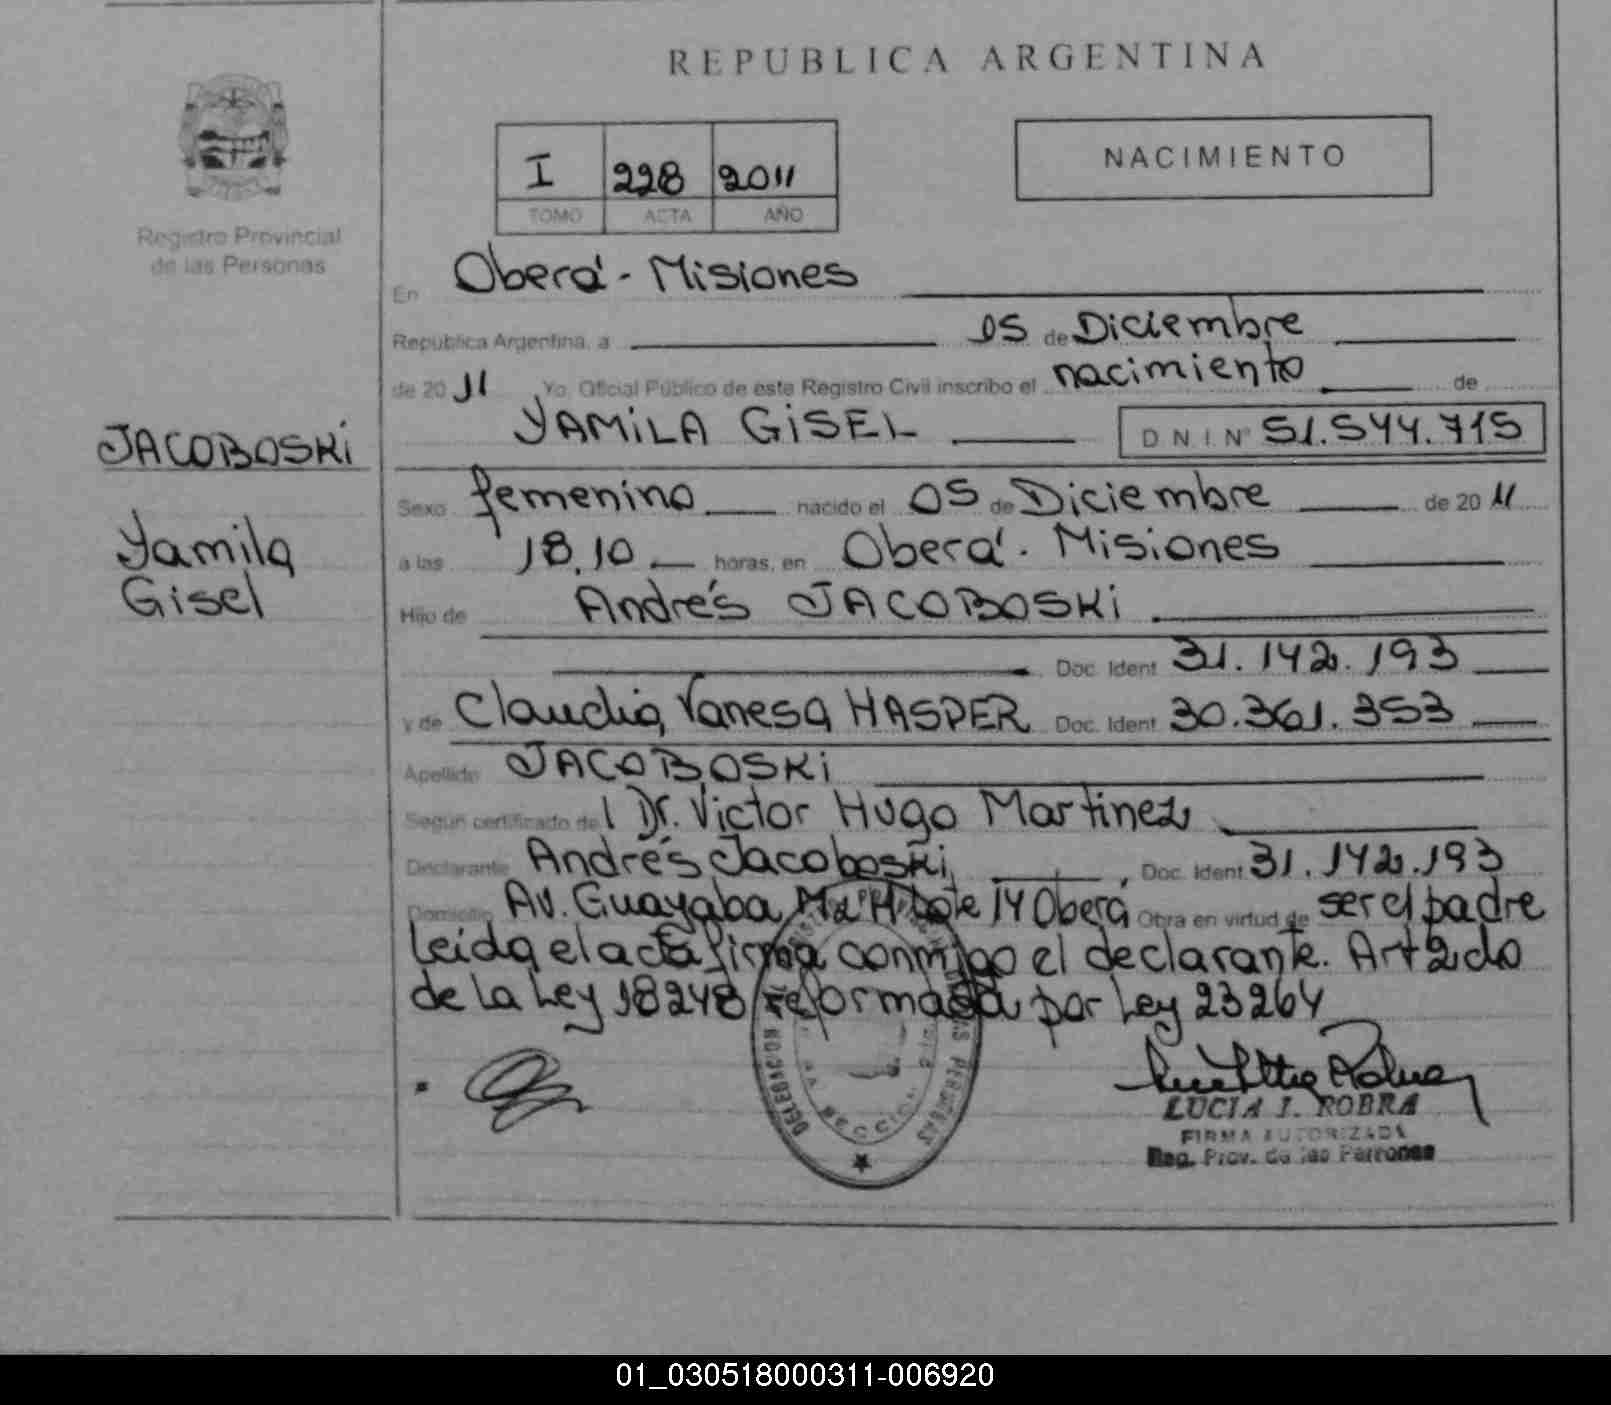 REPUBLICA ARGENTINA
I 228 2011
TOMO ACTA AÑO
NACIMIENTO
Registro Provincial
de las Personas
En Oberá - Misiones
República Argentina, a 05 de Diciembre
de 2011 Yo, Oficial Público de este Registro Civil inscribo el nacimiento de
YAMILA GISEL D N I Nº 51.544.715
JACOBOSKi
Yamila
Gisel
Sexo femenino nacido el 05 de Diciembre de 2011
a las 18.10 horas, en Oberá. Misiones
Hijo de Andrés JACOBOSKi
Doc. Ident. 31.142.193
y de Claudia Vanesa HASPER Doc. Ident. 30.361.353
Apellido JACOBOSKi
Según certificado del Dr. Victor Hugo Martinez
Declarante Andrés Jacoboski, Doc. Ident. 31.142.193
Domicilio Av. Guayaba Mz "H" Lote 14 Oberá Obra en virtud de ser el padre
Leída el acta firma conmigo el declarante. Art 2do
de La Ley 18248 reformada por Ley 23264
LUCIA I. ROBRA
FIRMA AUTORIZADA
Reg. Prov. de las Personas
SECCION
01_030518000311-006920